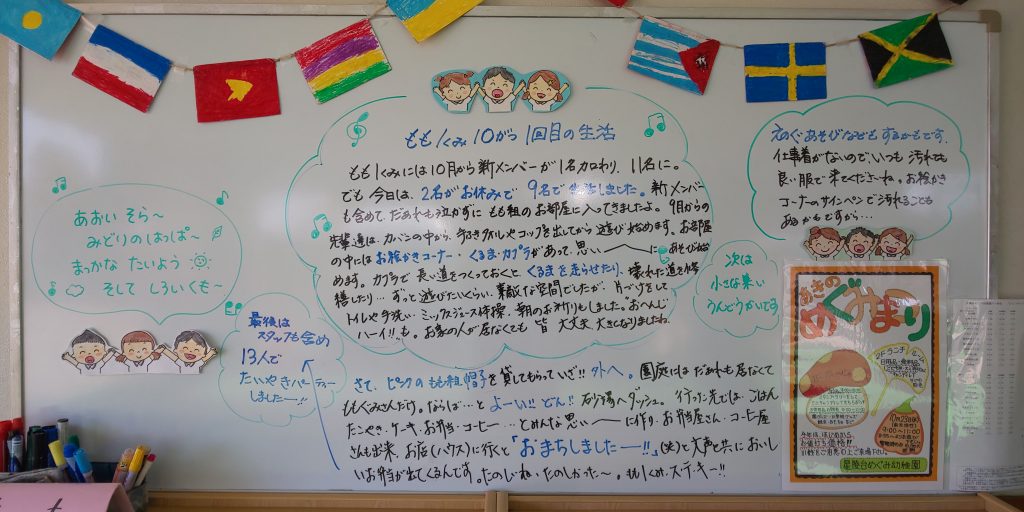 あおい そら～
みどりのはっぱ～
まっかな たいよう
そして しろいくも～
最後は
スタッフも含め
13人で
たいやきパーティー
しました―!!
ももぐみ 10がつ 1回目の生活
ももぐみには10月から新メンバーが1名加わり、11名に。
でも今日は、2名がお休みで 9名で生活しました。新メンバー
も含めて、だぁれも泣かずに もも組のお部屋に入ってきましたよ。9月からの
先輩達は、カバンの中から、手ふきタオルやコップを出してから遊び始めます。お部屋
の中にはお絵かきコーナー・くるま・カプラがあって、思い――にあそび始
めます。カプラで長い道をつくっておくと、くるまを走らせたり、壊れた道を修
繕したり…ずっと遊びたいくらい、素敵な空間でしたが、片づけをして
トイレや手洗い・ミックスジュース体操、朝のお祈りもしました。おへんじ
ハーイ!!も。お家の人が居なくても 皆 大丈夫、大きくなりましたね。
さて、ピンクのもも組帽子を貸してもらっていざ!!外へ。園庭にはだぁれも居なくて
ももぐみさんだけ。ならば…と よーい!!どん!! 砂場へダッシュ。行った先では、ごはん
たこやき・ケーキ・お弁当・コーヒー…とみんな思い――に作り、お弁当屋さん・コーヒー屋
さんも出来、お店(ハウス)に行くと「おまちしました―!!」(笑)と大声と共においし
いお弁当が出てくるんです。たのしいね・たのしかった～。ももぐみ、ステキー!!
えのぐあそびなども するかもです。
仕事着がないので、いつも 汚れても
良い服で 来てくださいね。お絵かき
コーナーのサインペンで汚れることも
あるかもですから…
次は
小さな集い
うんどうかいです
あきの
めぐみまつり
10月23日
9:00～11:00
星陵台めぐみ幼稚園